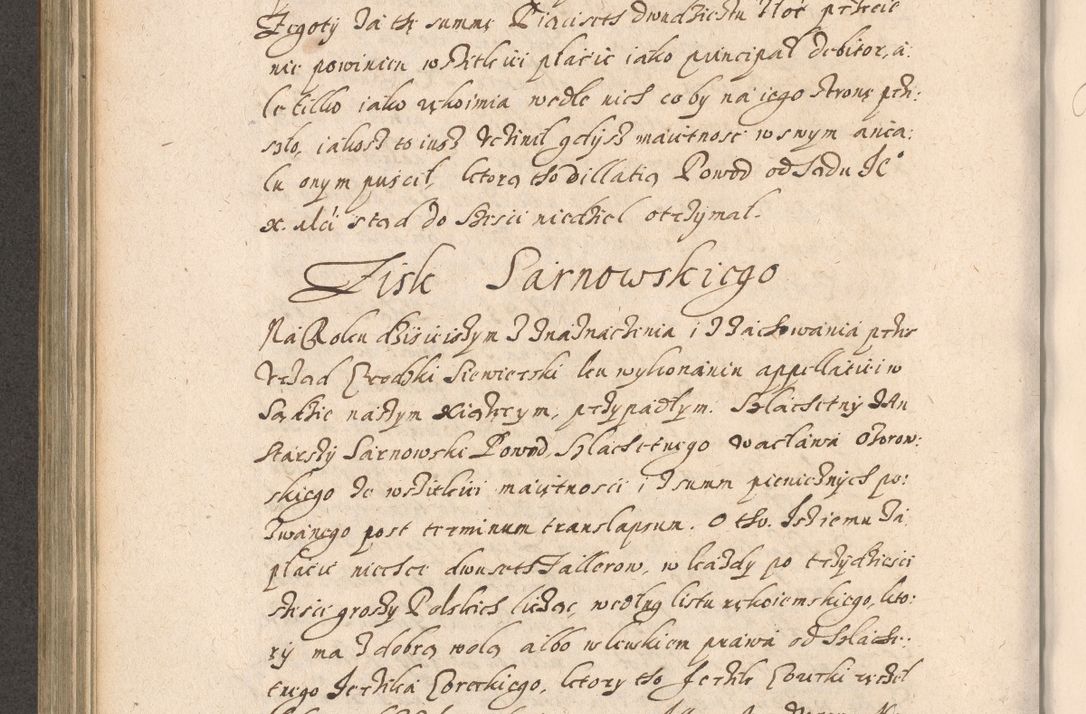 Zegoty za tę summę Piąciseth dwudziestu złoć przecie
nie powinien wszitkiei płacic iako principał debitor, a:
le tilko iako rękoimia wedle nich co by na iego stronę przi:
szło, iakosz to iusz vczinił gdysz maiętnosc w swym anca:
lu onym puscił, ktorą tho dillatią Powod od Sądu Je°
x. Mci stąd do sześci niedziel otrzymał.
Zisk Sarnowskiego
Na Roku dzisieiszym z znaznaczenia i zachowania przez
Vrząd Grodzki Siewierski ku wykonaniu appellatiei w
Sądzie naszym Xiążęcym, przypadłym. Szlachetny Jan
Starszy Sarnowski Powod, Szlachetnego Wacława Ożorow:
skiego ze wszitkiei maiętnosci i z summ pieniężnych po:
zwanego post terminum translapsum. O tho. Isz iemu za
płacic niechce dwuseth Tallerow, w każdy po trzydziesci
sześc groszy Polskich licząc, według listu rękoiemskiego, kto:
ry ma z dobrą wolą albo wlewkiem prawa od Szlache:
tnego Jerzika, ktory tho Jerzik ręczel